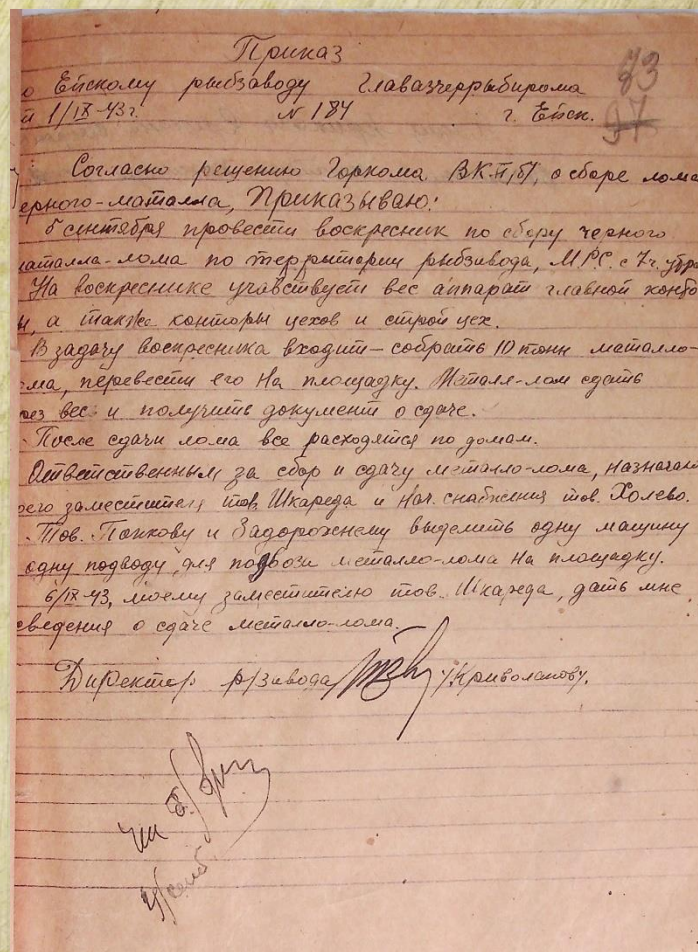 Приказ
о Ейскому рыбзаводу Главазчеррыбпрома
1/IX-43г. № 184 г. Ейск.
73
97
Согласно рещению Горкома ВКП/б/, о сборе лома
ерного-маталла, Приказываю:
5 сентября провести воскресник по сбору черного
маталла-лома по территории рыбзавода, М.Р.С. с 7ч. утра
На воскреснике учавствует вес аппарат главной конто
ы, а также конторы цехов и строй цех.
В задачу воскресника входит - собрать 10 тонн маталло-
ма, перевести его на площадку. Металл-лом сдать
рез вес и получить документ о сдаче.
После сдачи лома все расходятся по домам.
Ответственным за сбор и сдачу металло-лома, назначаю
оего заместителя тов. Шкареда и нач. снабжения тов. Холево.
Тов. Попкову и Задорожнему выделить одну машину
одну подводу, для подвози металло-лома на площадку.
6/IX-43, моему заместителю тов. Шкареда, дать мне
сведения о сдаче металло-лома.
Директор р/завода /Криволапову.